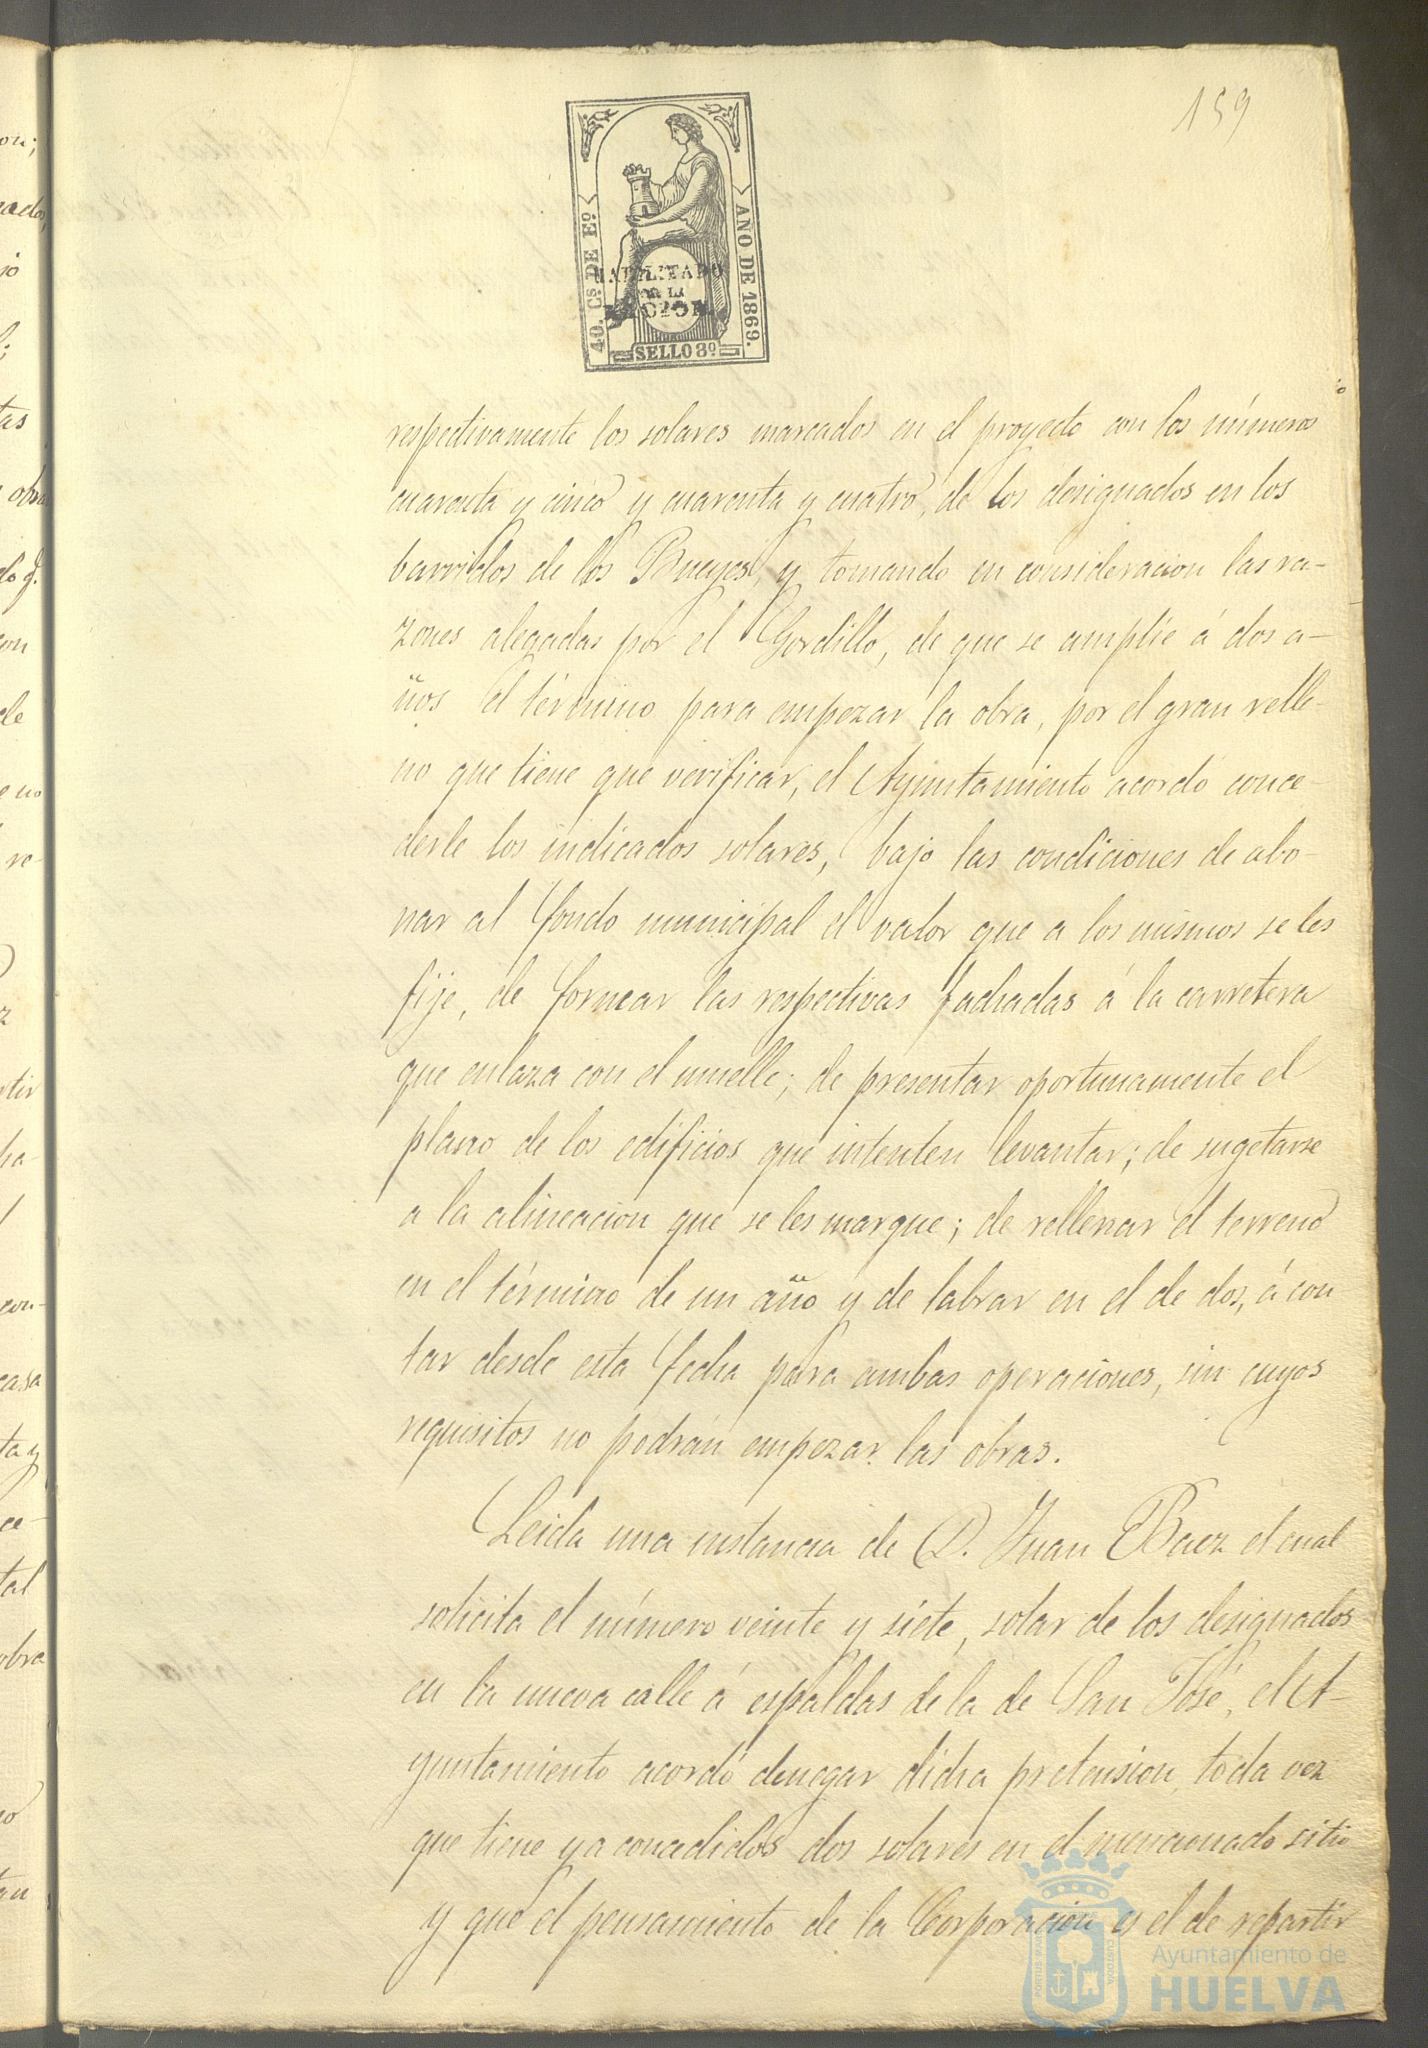 159
40. Cs. DE Eº.
AÑO DE 1869.
HABILITADO
POR LA
NACION
SELLO 8º
respectivamente los solares marcados en el proyecto con los números
cuarenta y cinco y cuarenta y cuatro, de los designados en los
barridos de los Bueyes, y tomando en consideracion las ra-
zones alegadas por el Gordillo, de que se amplie á dos a-
ños el término para empezar la obra, por el gran relle-
no que tiene que verificar, el Ayuntamiento acordó conce-
derle los indicados solares, bajo las condiciones de abo-
nar al fondo municipal el valor que a los mismos se les
fije, de formar las respectivas fachadas á la carretera
que enlaza con el muelle; de presentar oportunamente el
plano de los edificios que intenten levantar; de sugetarse
a la alineacion que se les marque; de rellenar el terreno
en el término de un año y de labrar en el de dos, á con
tar desde esta fecha para ambas operaciones, sin cuyos
requisitos no podrán empezar las obras.
Leida una instancia de D. Juan Baez el cual
solicita el número veinte y siete, solar de los designados
en la nueva calle á espaldas de la de San José, el A-
yuntamiento acordó denegar dicha pretension, toda vez
que tiene ya concedidos dos solares en el mencionado sitio
y que el pensamiento de la Corporacion es el de repartir
Ayuntamiento de
HUELVA